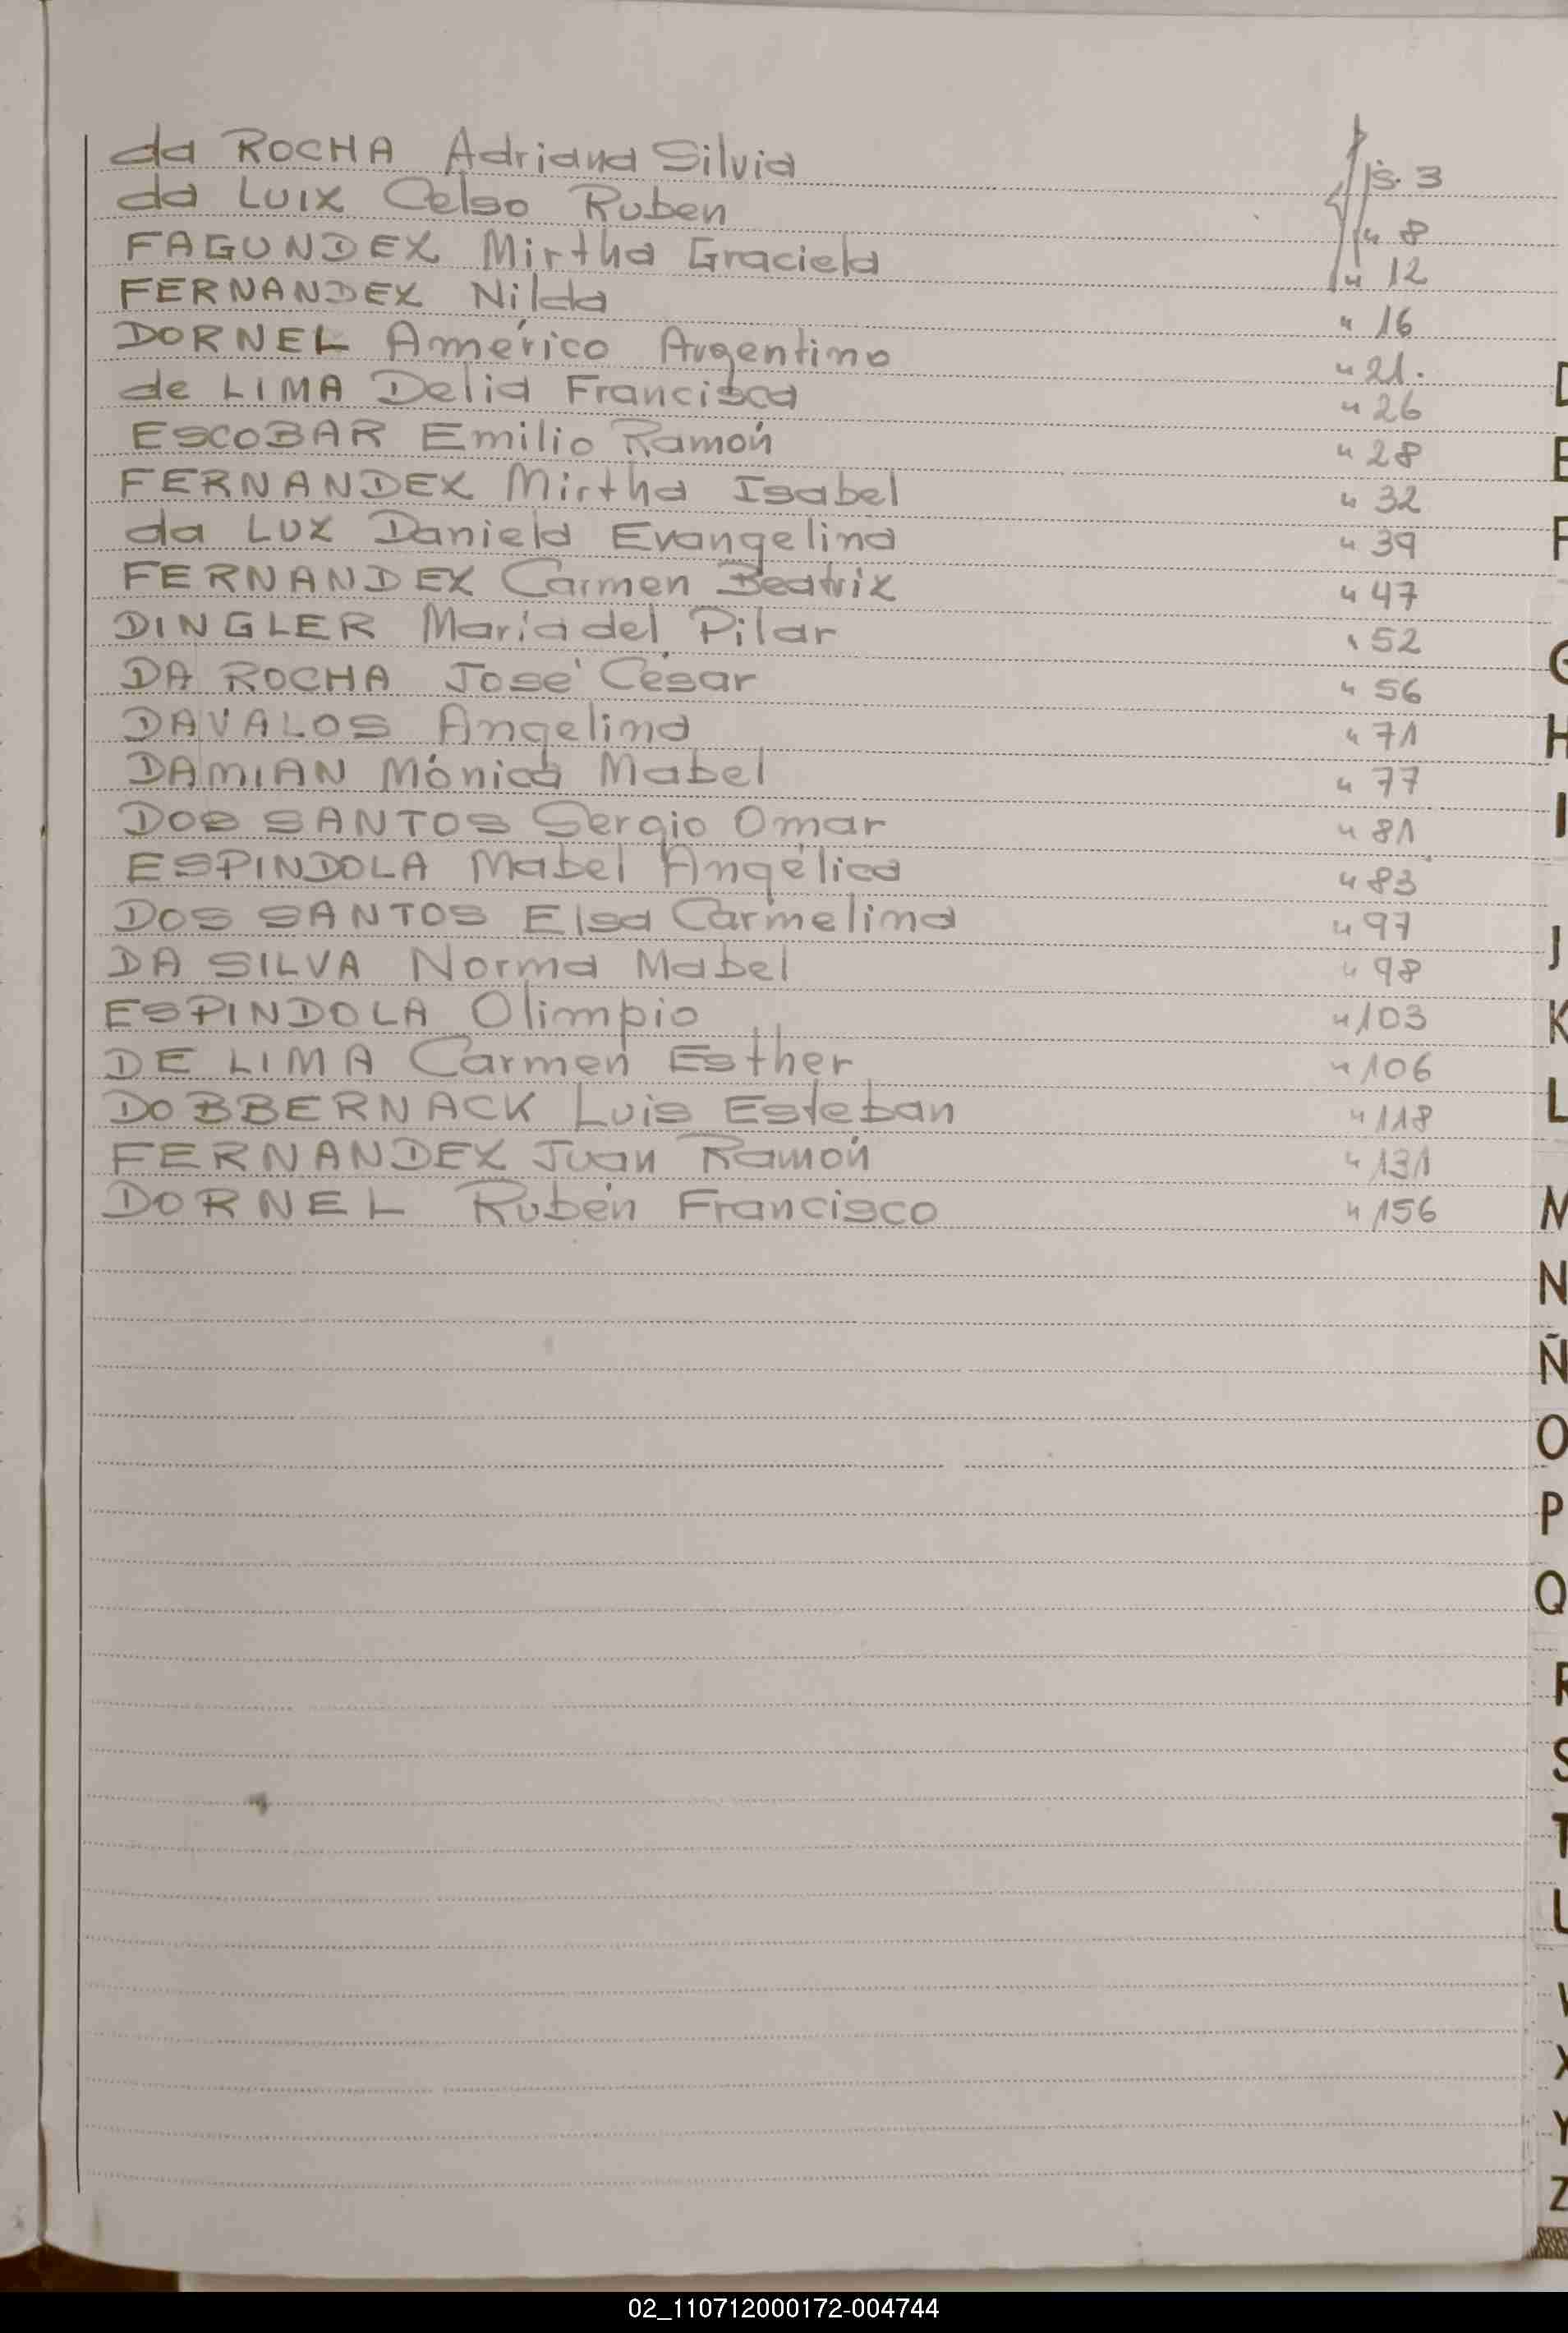 da ROCHA Adriana Silvia fjs. 3
da LUIZ Celso Ruben " 8
FAGUNDEZ Mirtha Graciela " 12
FERNANDEZ Nilda " 16
DORNEL Américo Argentino " 21.
de LIMA Delia Francisca " 26
ESCOBAR Emilio Ramón " 28
FERNANDEZ Mirtha Isabel " 32
da LUZ Daniela Evangelina " 39
FERNANDEZ Carmen Beatriz " 47
DINGLER María del Pilar " 52
DA ROCHA José César " 56
DAVALOS Angelina " 71
DAMIAN Mónica Mabel " 77
DOS SANTOS Sergio Omar " 81
ESPINDOLA Mabel Angélica " 83
DOS SANTOS Elsa Carmelina " 97
DA SILVA Norma Mabel " 98
ESPINDOLA Olimpio " 103
DE LIMA Carmen Esther " 106
DOBBERNACK Luis Esteban " 118
FERNANDEZ Juan Ramón " 131
DORNEL Rubén Francisco " 156
D
E
F
G
H
I
J
K
L
M
N
Ñ
O
P
Q
R
S
T
U
V
X
Y
Z
02_110712000172-004744